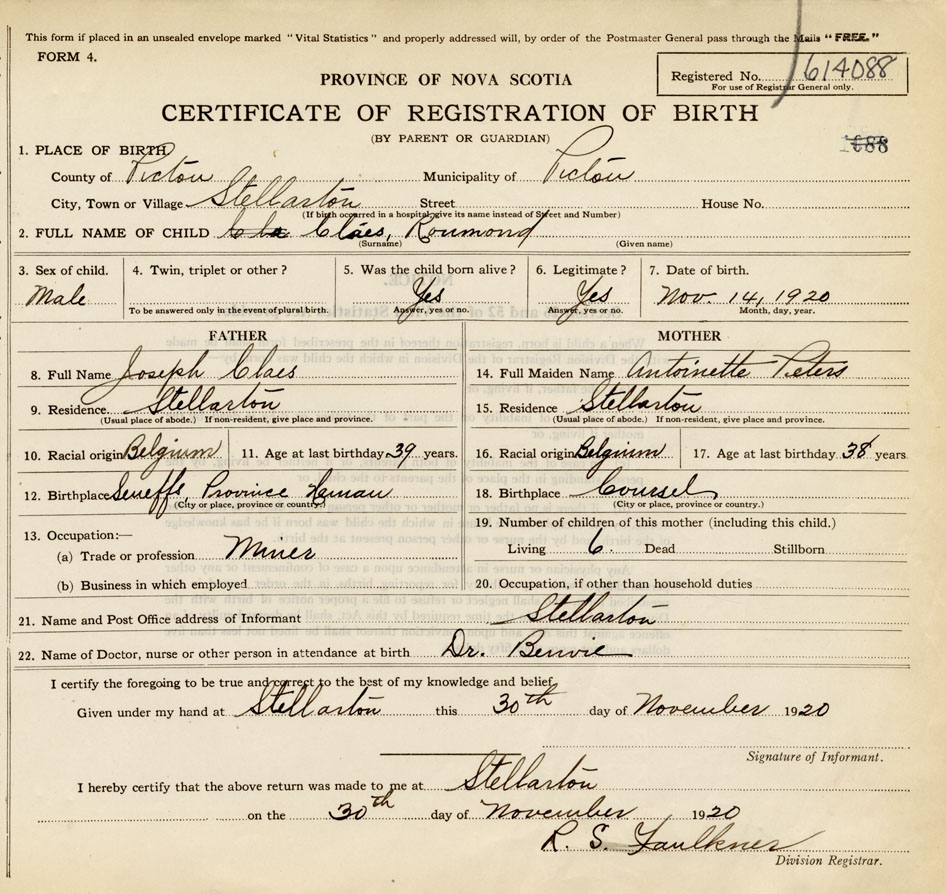 This form if placed in an unsealed envelope marked "Vital Statistics" and properly addressed will, by order of the Postmaster General pass through the Mails "FREE."
FORM 4.
PROVINCE OF NOVA SCOTIA
Registered No. 614088
For use of Registrar General only.
CERTIFICATE OF REGISTRATION OF BIRTH
(BY PARENT OR GUARDIAN)
1. PLACE OF BIRTH
County of Picton Municipality of Picton
City, Town or Village Stellarton Street House No.
(If birth occurred in a hospital, give its name instead of Street and Number)
2. FULL NAME OF CHILD Claes, Roumond
(Surname) (Given name)
3. Sex of child. 4. Twin, triplet or other? 5. Was the child born alive? 6. Legitimate? 7. Date of birth.
Male Yes Yes Nov. 14, 1920
To be answered only in the event of plural birth. Answer, yes or no. Answer, yes or no. Month, day, year.
FATHER MOTHER
8. Full Name Joseph Claes 14. Full Maiden Name Antoinette Peters
9. Residence Stellarton 15. Residence Stellarton
(Usual place of abode.) If non-resident, give place and province. (Usual place of abode.) If non-resident, give place and province.
10. Racial origin Belgium 11. Age at last birthday 39 years. 16. Racial origin Belgium 17. Age at last birthday 38 years
12. Birthplace Seneffs, Province Hainau 18. Birthplace Coursel
(City or place, province or country.) (City or place, province or country.)
13. Occupation:— 19. Number of children of this mother (including this child.)
(a) Trade or profession Miner Living 6. Dead Stillborn
(b) Business in which employed 20. Occupation, if other than household duties
21. Name and Post Office address of Informant Stellarton
22. Name of Doctor, nurse or other person in attendance at birth Dr. Benvie
I certify the foregoing to be true and correct to the best of my knowledge and belief.
Given under my hand at Stellarton this 30th day of November 1920
Signature of Informant.
I hereby certify that the above return was made to me at Stellarton
on the 30th day of November 1920
R. S. Faulkner
Division Registrar.